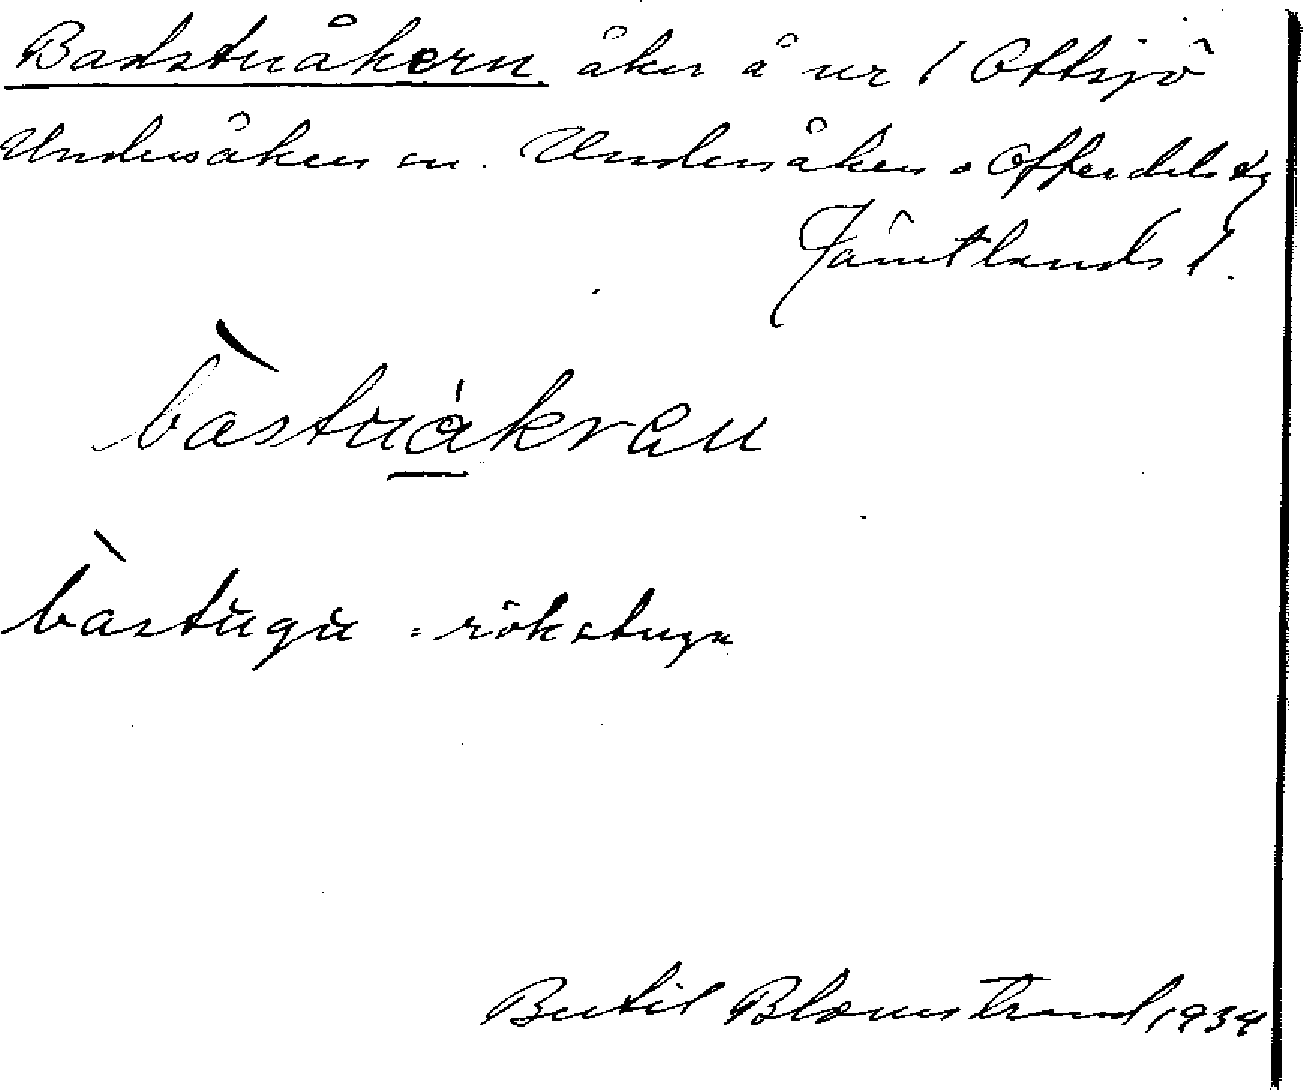 Badstuåkern åker å nr 1 Ottsjö
Undersåkers sn. Undersåkers o Offerdals tg
Jämtlands l.
bàstuåkran
bàstugu = rökstuga
Bertil Blomstrand 1934